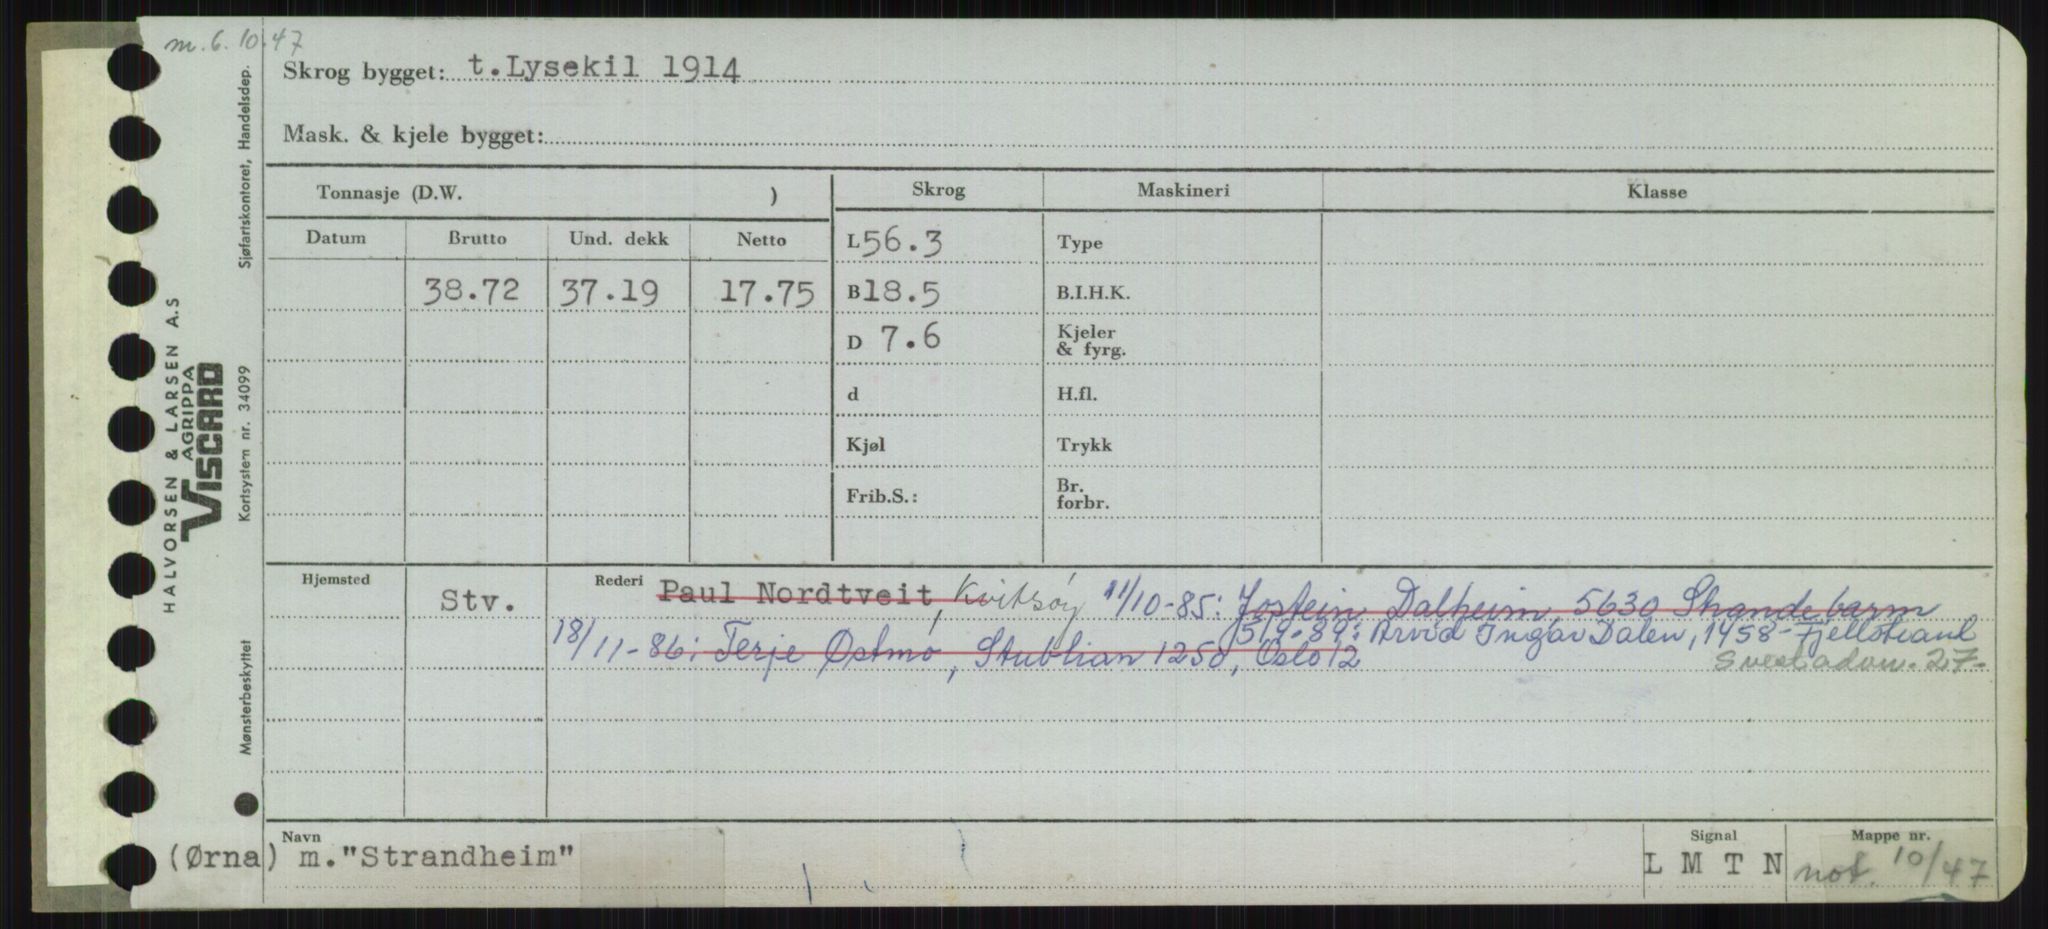 m. 6. 10. 47
Skrog bygget: t.Lysekil 1914
Mask. & kjele bygget:
Tonnasje (D.W. )
Skrog Maskineri Klasse
Datum Brutto Und. dekk Netto
L 56.3 Type
38.72 37.19 17.75 B 18.5 B.I.H.K.
D 7.6 Kjeler
& fyrg.
d H.fl.
Kjøl Trykk
Frib.S.: Br.
forbr.
Hjemsted Rederi
Stv. Paul Nordtveit, Kvitsøy 11/10-85: Jostein Dalheim, 5630 Strandebarm
18/11-86: Terje Østmo, Stublian 1250, Oslo 12 5/9-89: Arvid Ingar Dalen, 1458-Fjellstrand
27.
Navn Signal Mappe nr.
(Ørna) m."Strandheim" L M T N not. 10/47
HALVORSEN & LARSEN A.S
AGRIPPA
VISCARD
Mønsterbeskyttet Kortsystem nr. 34099 Sjøfartskontoret, Handelsdep.